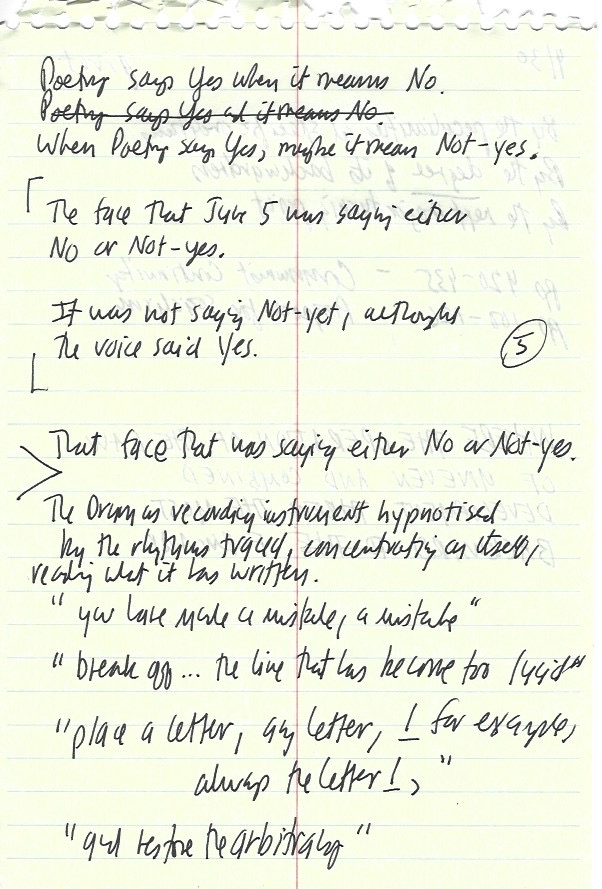 Poetry says Yes when it means No.
Poetry says Yes and it means No.
When Poetry says Yes, maybe it means Not-yes.
The face that June 5 was saying either
No or Not-yes.
It was not saying Not-yet, although
the voice said Yes.
5
That face that was saying either No or Not-yes.
The Drum as recording instrument hypnotised
by the rhythms traced, concentrating on itself,
reading what it has written.
"you have made a mistake, a mistake"
"break off... the line that has become too lucid"
"place a letter, any letter, I for example,
always the letter I,"
"and restore the arbitrary"